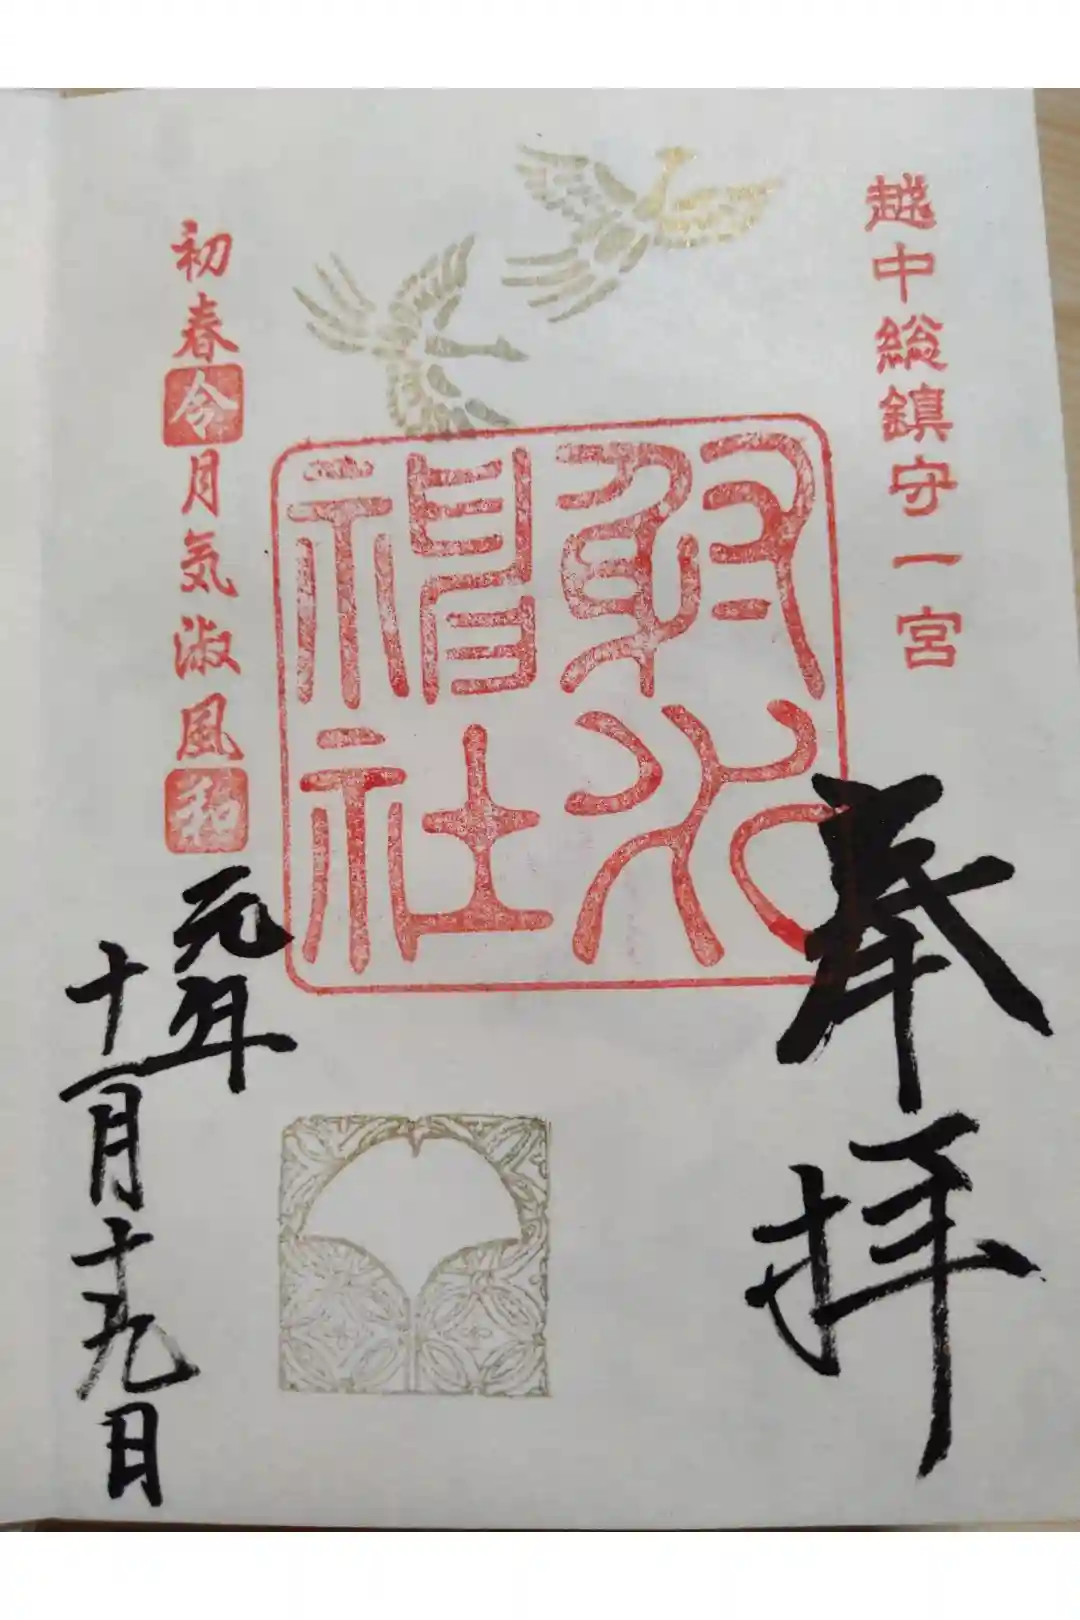 越中総鎮守一宮
奉拝
射水
神社
初春令月気淑風和
元年
十一月十九日